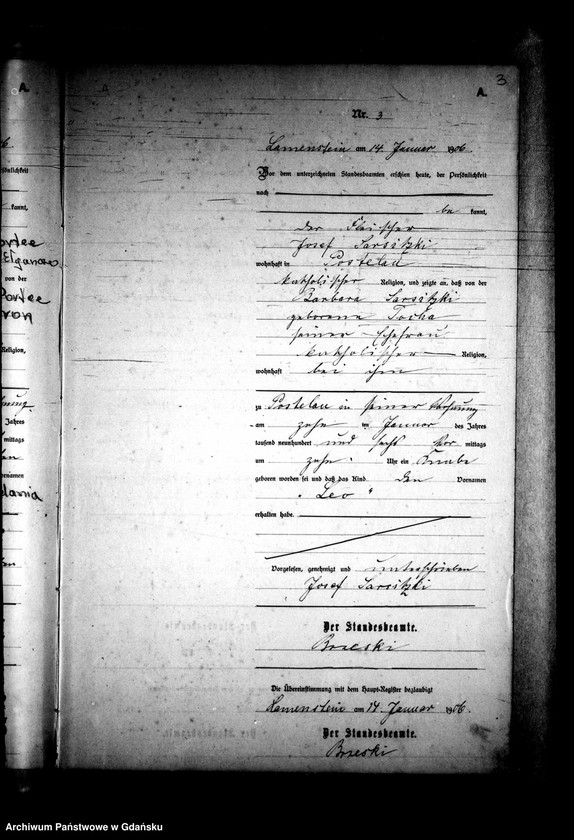 A.
3
Nr. 3
Lamenstein am 14 Januar 1906.
Vor dem unterzeichneten Standesbeamten erschien heute, der Persönlichkeit
nach
be kannt,
der Fleischer
Josef Sarsitzki
wohnhaft in Postelau
katholischer Religion, und zeigte an, daß von der
Barbara Sarsitzki
geborene Tocha
seiner Ehefrau
katholischer Religion,
wohnhaft bei ihm
zu Postelau in seiner Wohnung
am zehn ten Januar des Jahres
tausend neunhundert und sechs Vor mittags
um zehn Uhr ein Knabe
geboren worden sei und daß das Kind den Vornamen
"Leo"
erhalten habe.
Vorgelesen, genehmigt und unterschrieben
Josef Sarsitzki
Der Standesbeamte.
Brzeski
Die Übereinstimmung mit dem Haupt-Register beglaubigt
Lamenstein am 14. Januar 1906.
Der Standesbeamte.
Brzeski
A.
kannt,
Elganowo
von der
Religion,
Jahres
mittags
Archiwum Państwowe w Gdańsku